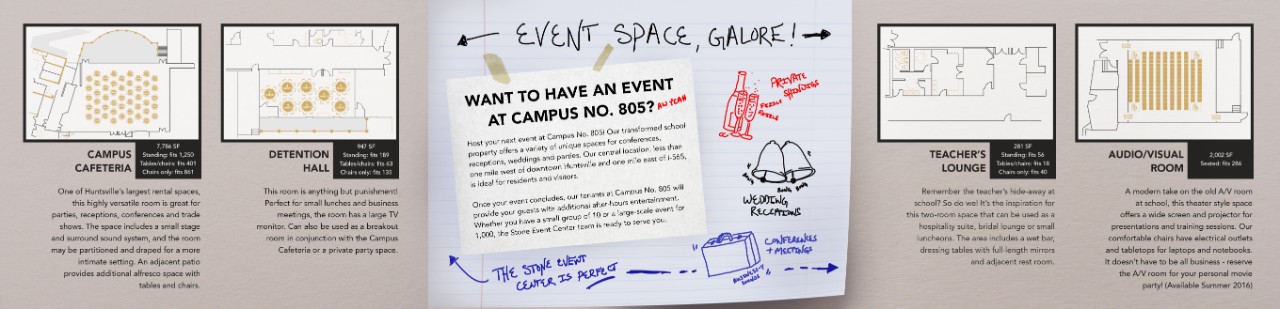 CAMPUS
CAFETERIA
7,786 SF
Standing: fits 1,250
Tables/chairs: fits 401
Chairs only: fits 861
One of Huntsville's largest rental spaces,
this highly versatile room is great for
parties, receptions, conferences and trade
shows. The space includes a small stage
and surround sound system, and the room
may be partitioned and draped for a more
intimate setting. An adjacent patio
provides additional alfresco space with
tables and chairs.
DETENTION
HALL
947 SF
Standing: fits 189
Tables/chairs: fits 63
Chairs only: fits 135
This room is anything but punishment!
Perfect for small lunches and business
meetings, the room has a large TV
monitor. Can also be used as a breakout
room in conjunction with the Campus
Cafeteria or a private party space.
EVENT SPACE, GALORE!
WANT TO HAVE AN EVENT
AT CAMPUS NO. 805? AW YEAH
Host your next event at Campus No. 805! Our transformed school
property offers a variety of unique spaces for conferences,
receptions, weddings and parties. Our central location, less than
one mile west of downtown Huntsville and one mile east of I-565,
is ideal for residents and visitors.
Once your event concludes, our tenants at Campus No. 805 will
provide your guests with additional after-hours entertainment.
Whether you have a small group of 10 or a large-scale event for
1,000, the Stone Event Center team is ready to serve you.
PRIVATE
SHINDIGS
WEDDING
RECEPTIONS
THE STONE EVENT
CENTER IS PERFECT
CONFERENCES
+ MEETINGS
TEACHER'S
LOUNGE
281 SF
Standing: fits 56
Tables/chairs: fits 18
Chairs only: fits 40
Remember the teacher's hide-away at
school? So do we! It's the inspiration for
this two-room space that can be used as a
hospitality suite, bridal lounge or small
luncheons. The area includes a wet bar,
dressing tables with full-length mirrors
and adjacent rest room.
AUDIO/VISUAL
ROOM
2,002 SF
Seated: fits 286
A modern take on the old A/V room
at school, this theater style space
offers a wide screen and projector for
presentations and training sessions. Our
comfortable chairs have electrical outlets
and tabletops for laptops and notebooks.
It doesn't have to be all business - reserve
the A/V room for your personal movie
party! (Available Summer 2016)